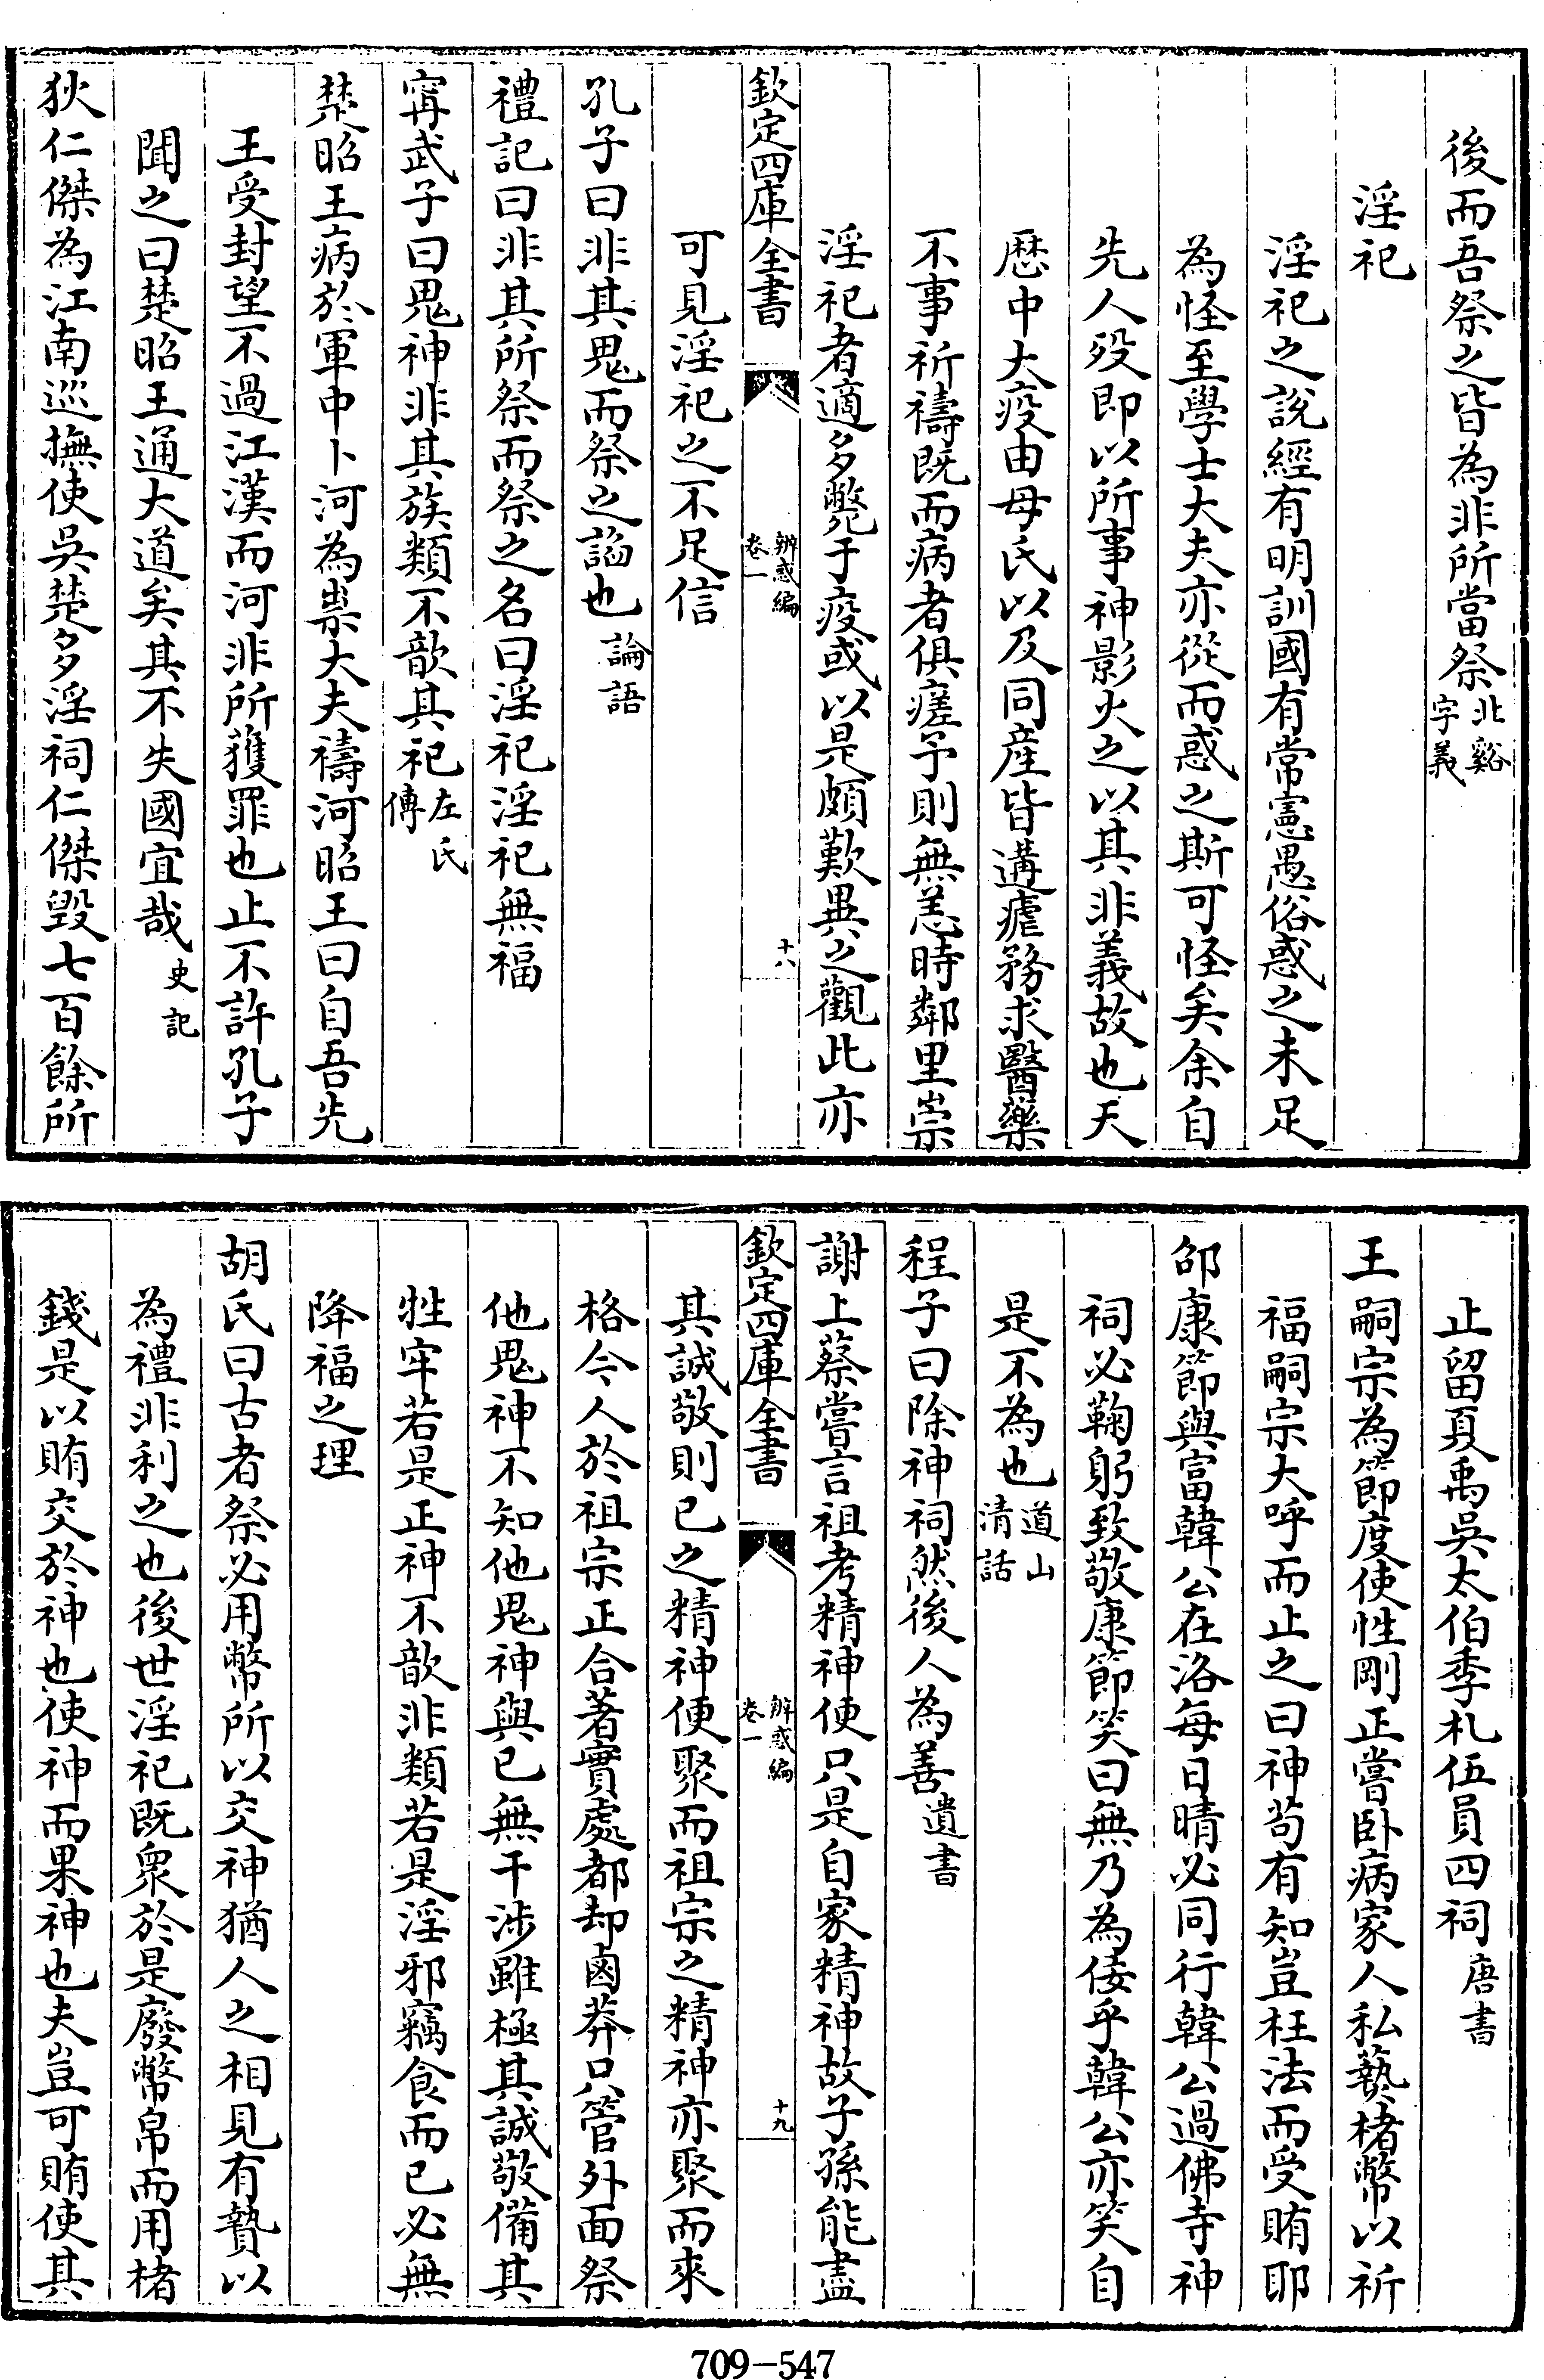 後而吾祭之皆為非所當祭北谿字義
淫祀
淫祀之說經有明訓國有常憲愚俗惑之未足
為怪至學士大夫亦從而惑之斯可怪矣余自
先人歿即以所事神影火之以其非義故也天
厯中大疫由母氏以及同産皆遘瘧務求醫藥
不事祈禱既而病者俱瘥予則無恙時鄰里崇
淫祀者適多斃于疫或以是頗歎異之觀此亦
欽定四庫全書
辨惑編
卷一
十八
可見淫祀之不足信
孔子曰非其鬼而祭之諂也論語
禮記曰非其所祭而祭之名曰淫祀淫祀無福
甯武子曰鬼神非其族類不歆其祀左氏傳
楚昭王病於軍中卜河為祟大夫禱河昭王曰自吾先
王受封望不過江漢而河非所獲罪也止不許孔子
聞之曰楚昭王通大道矣其不失國宜哉史記
狄仁傑為江南巡撫使吳楚多淫祠仁傑毁七百餘所
止留夏禹吳太伯季札伍員四祠唐書
王嗣宗為節度使性剛正嘗卧病家人私爇楮幣以祈
福嗣宗大呼而止之曰神苟有知豈枉法而受賄耶
邵康節與富韓公在洛每日晴必同行韓公過佛寺神
祠必鞠躬致敬康節笑曰無乃為佞乎韓公亦笑自
是不為也道山清話
程子曰除神祠然後人為善遺書
謝上蔡嘗言祖考精神便只是自家精神故子孫能盡
欽定四庫全書
辨惑編
卷一
十九
其誠敬則已之精神便聚而祖宗之精神亦聚而來
格今人於祖宗正合著實處都却鹵莽只管外面祭
他鬼神不知他鬼神與已無干涉雖極其誠敬備其
牲牢若是正神不歆非類若是淫邪竊食而已必無
降福之理
胡氏曰古者祭必用幣所以交神猶人之相見有贄以
為禮非利之也後世淫祀既衆於是廢幣帛而用楮
錢是以賄交於神也使神而果神也夫豈可賄使其
709-547